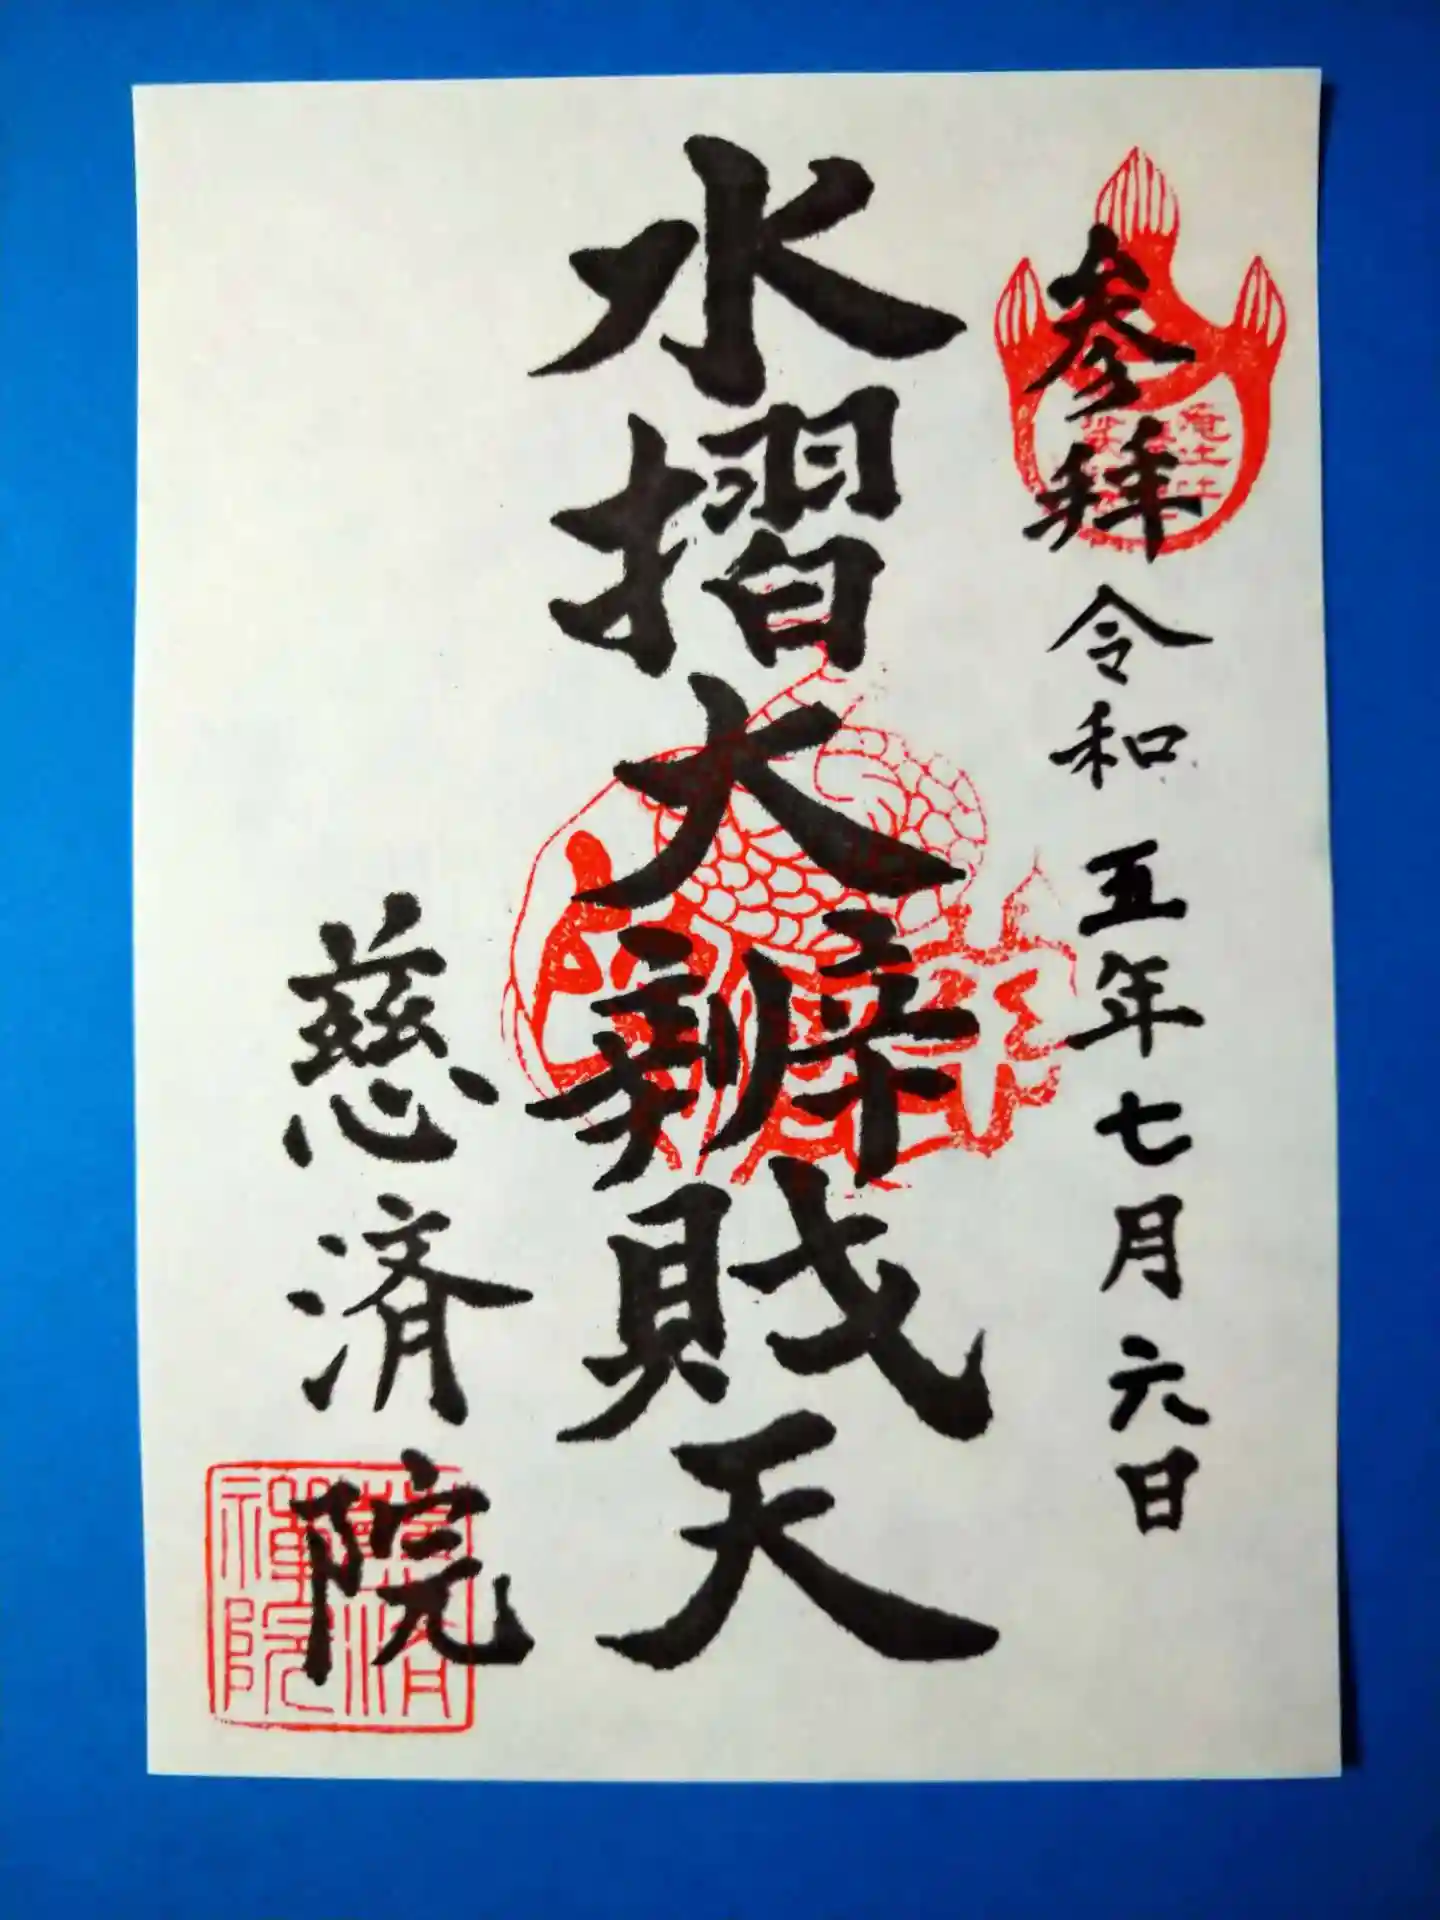 参拝 令和五年七月六日
水摺大辨財天
慈済院